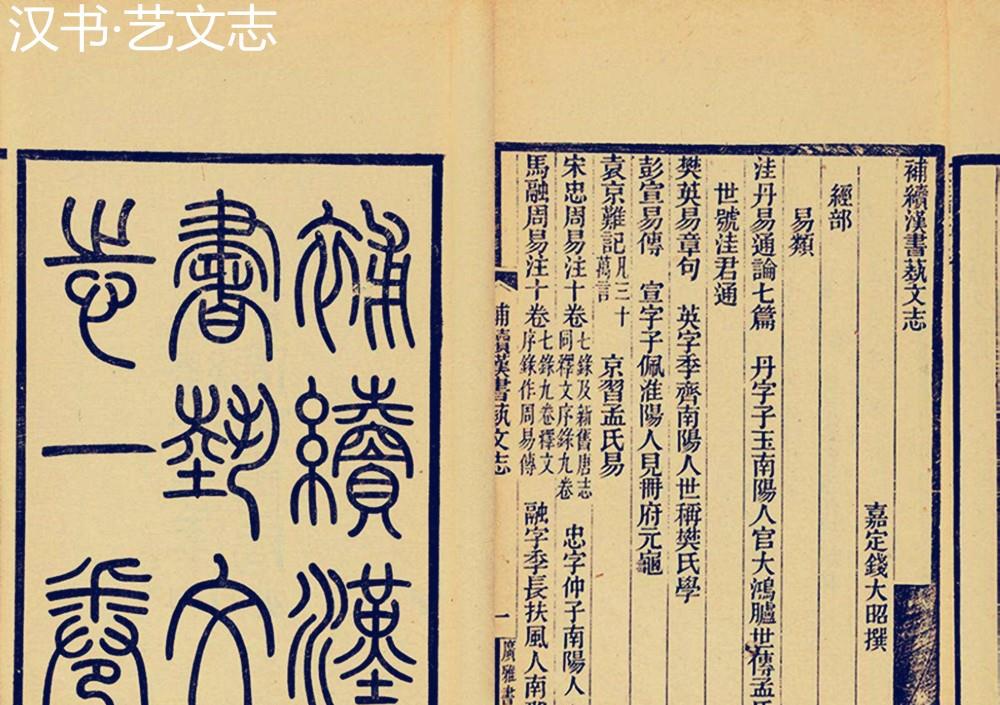 汉书·艺文志
補續漢書藝文志
嘉定錢大昭撰
經部
易類
洼丹易通論七篇 丹字子玉南陽人官大鴻臚世傳孟氏
世號洼君通
樊英易章句 英字季齊南陽人世稱樊氏學
彭宣易傳 宣字子佩淮陽人見冊府元龜
袁京難記凡三十萬言 京習孟氏易
宋忠周易注十卷七錄及新舊唐志同釋文序錄九卷 忠字仲子南陽人
馬融周易注十卷七錄九卷釋文序錄作周易傳 融字季長扶風人南郡
補續漢書藝文志
一
廣雅書
補續漢
書藝文
志一卷